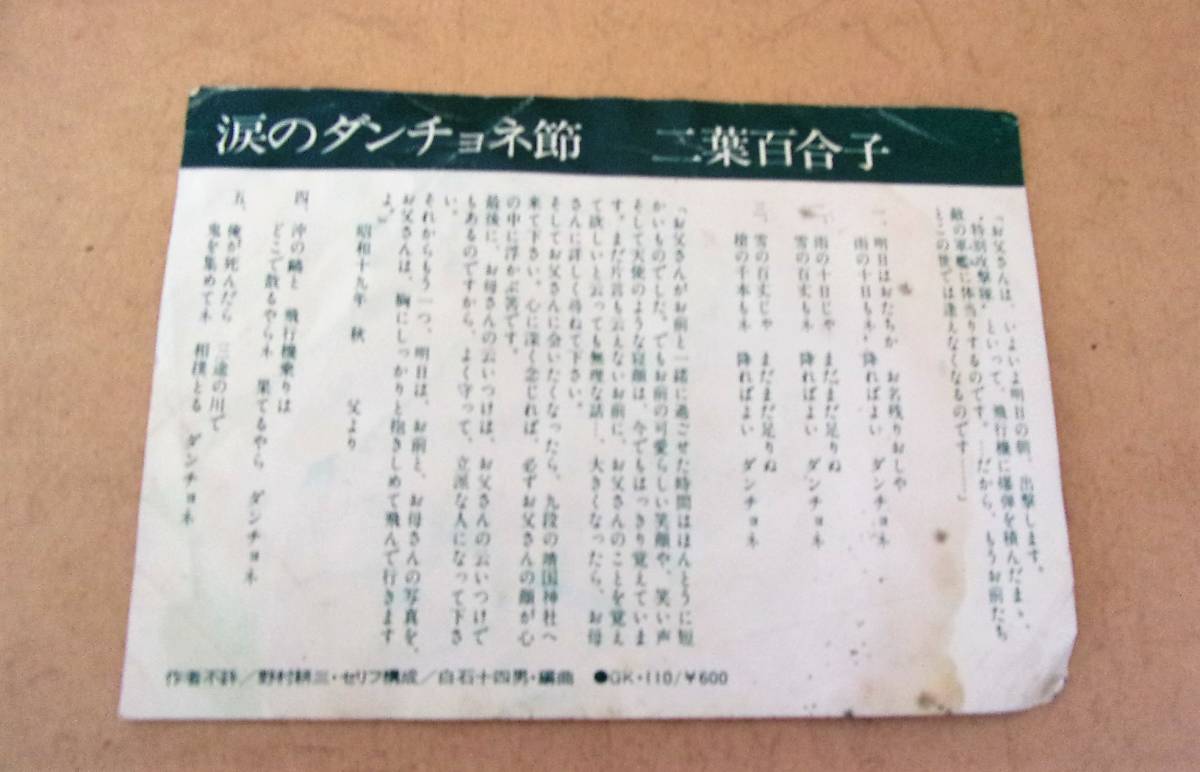 涙のダンチョネ節　二葉百合子
「お父さんは、いよいよ明日の朝、出撃します。
"特別攻撃隊"といって、飛行機に爆弾を積んだまゝ、
敵の軍艦に体当りするのです。…だから、もうお前たち
とこの世では逢えなくなるのです……」
一、明日はおたちか　お名残りおしや
雨の十日もネ　降ればよい　ダンチョネ
二、雨の十日じや　まだまだ足りぬ
雪の百丈もネ　降ればよい　ダンチョネ
三、雪の百丈じや　まだまだ足りぬ
槍の千本もネ　降ればよい　ダンチョネ
「お父さんがお前と一緒に過ごせた時間はほんとうに短
かいものでした。でもお前の可愛らしい笑顔や、笑い声
そして天使のような寝顔は、今でもはっきり覚えていま
す。まだ片言も云えないお前に、お父さんのことを覚え
て欲しいと云っても無理な話…、大きくなったら、お母
さんに詳しく尋ねて下さい。
そしてお父さんに会いたくなったら、九段の靖国神社へ
来て下さい。心に深く念じれば、必ずお父さんの顔が心
の中に浮かぶ筈です。
最後に、お母さんの云いつけは、お父さんの云いつけで
もあるのですから、よく守って、立派な人になって下さ
い。
それからもう一つ、明日は、お前と、お母さんの写真を、
お父さんは、胸にしっかりと抱きしめて飛んで行きます
よ。」
昭和十九年　秋　父より
四、沖の鴎と　飛行機乗りは
どこで散るやらネ　果てるやら　ダンチョネ
五、俺が死んだら　三途の川で
鬼を集めてネ　相撲とる　ダンチョネ
作者不詳／野村耕三・セリフ構成／白石十四男・編曲　●GK・110/￥600